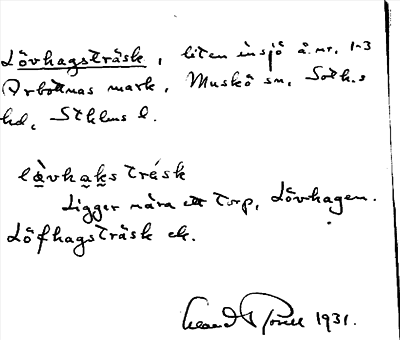 Lövhagsträsk, liten insjö å nr. 1-3
Årbottnas mark, Muskö sn, Soth.s
hd, Sthlms l.
lövhaksträsk
Ligger nära ett torp, Lövhagen.
Löfhagsträsk ek.
1931.